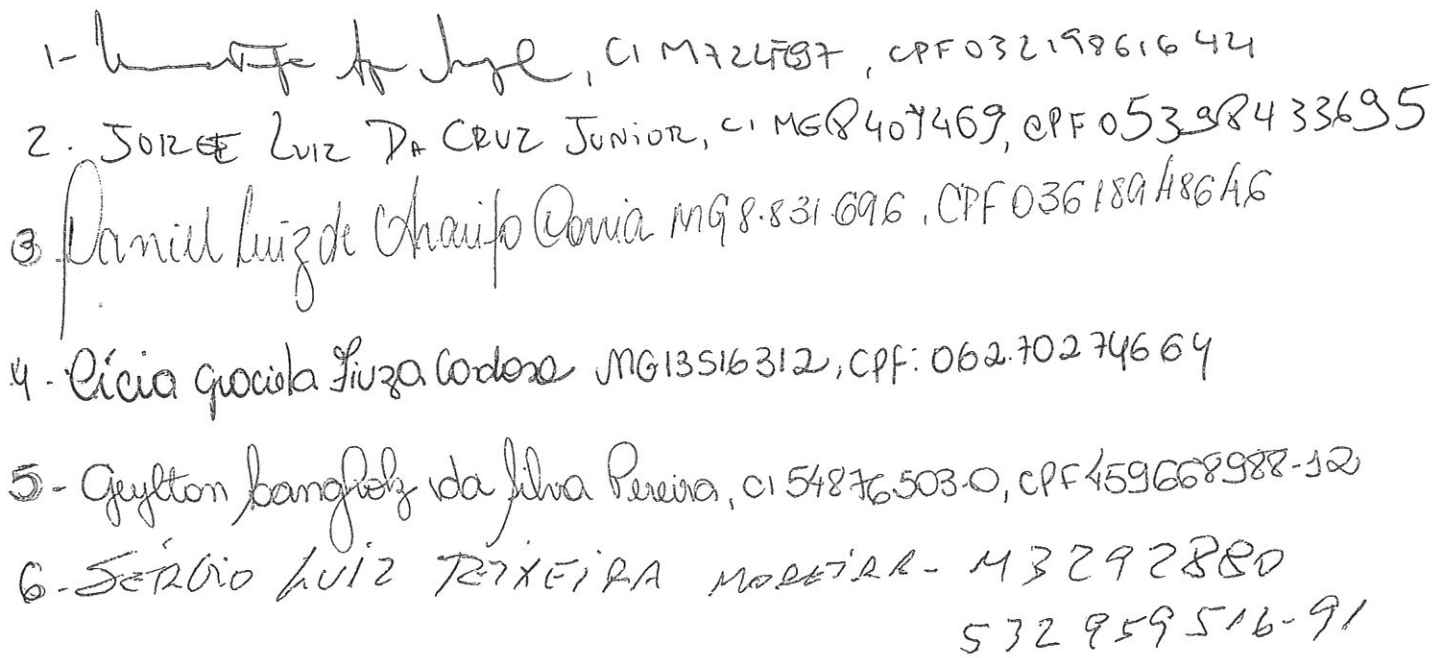 1- , CI M7247597, CPF 03219861644
2. JORGE LUIZ DA CRUZ JUNIOR, CI MG8407469, CPF 05398433695
3 Daniel Luiz de Araujo Doria MG 8.831.696, CPF 03618948646
4- Lícia Graciela Fiuza Cardoso MG13516312, CPF: 062.70274664
5- Geylton da Silva Pereira, CI 54876503-0, CPF 459668988-12
6- SÉRGIO LUIZ TEIXEIRA MOREIRA- M3292880
532959516-91